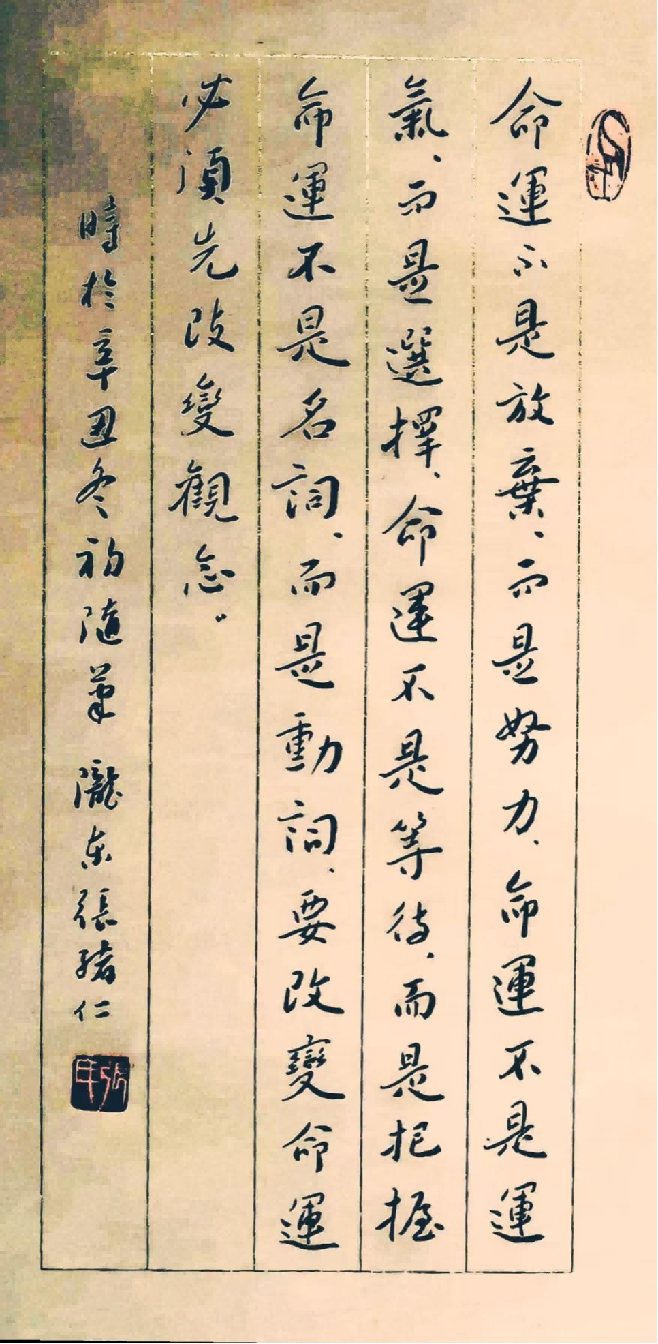 命運不是放棄、而是努力、命運不是運
氣、而是選擇、命運不是等待、而是把握
命運不是名詞、而是動詞、要改變命運
必須先改變觀念。
時於辛丑冬初隨筆 隴東張緒仁